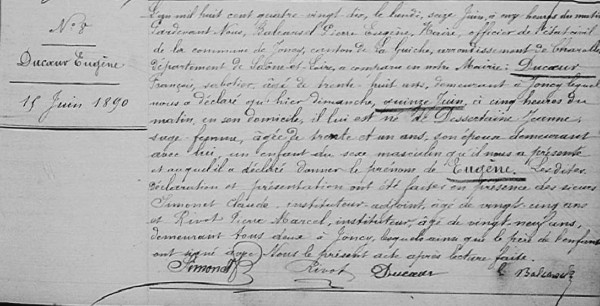 N.º 8
Ducœur Eugène
15 Juin 1890
L'an mil huit cent quatre-vingt dix, le lundi, seize Juin, à onze heures du matin
Pardevant Nous, Pierre Eugène, Maire, officier de l'état civil
de la commune de Joncy, canton de la Guiche, arrondissement de Charolles
département de Saône et Loire, a comparu en notre Mairie: Ducœur
François, sabotier, âgé de trente huit ans, demeurant à Joncy lequel
nous a déclaré qu'hier dimanche, quinze Juin, à cinq heures du
matin, en son domicile, il lui est né de Dessertaine Jeanne,
sage femme, âgée de trente et un ans, son épouse demeurant
avec lui, un enfant du sexe masculin qu'il nous a présenté
et auquel il a déclaré donner le prénom de "Eugène". Lesdites
déclaration et présentation ont été faites en présence des sieurs
Simonet Claude instituteur-adjoint, âgé de vingt cinq ans
et Rivot Pierre Marcel, instituteur, âgé de vingt neuf ans,
demeurant tous deux à Joncy, lesquels ainsi que le père de l'enfant
ont signé avec Nous le présent acte après lecture faite.
Simonet Rivot Ducœur